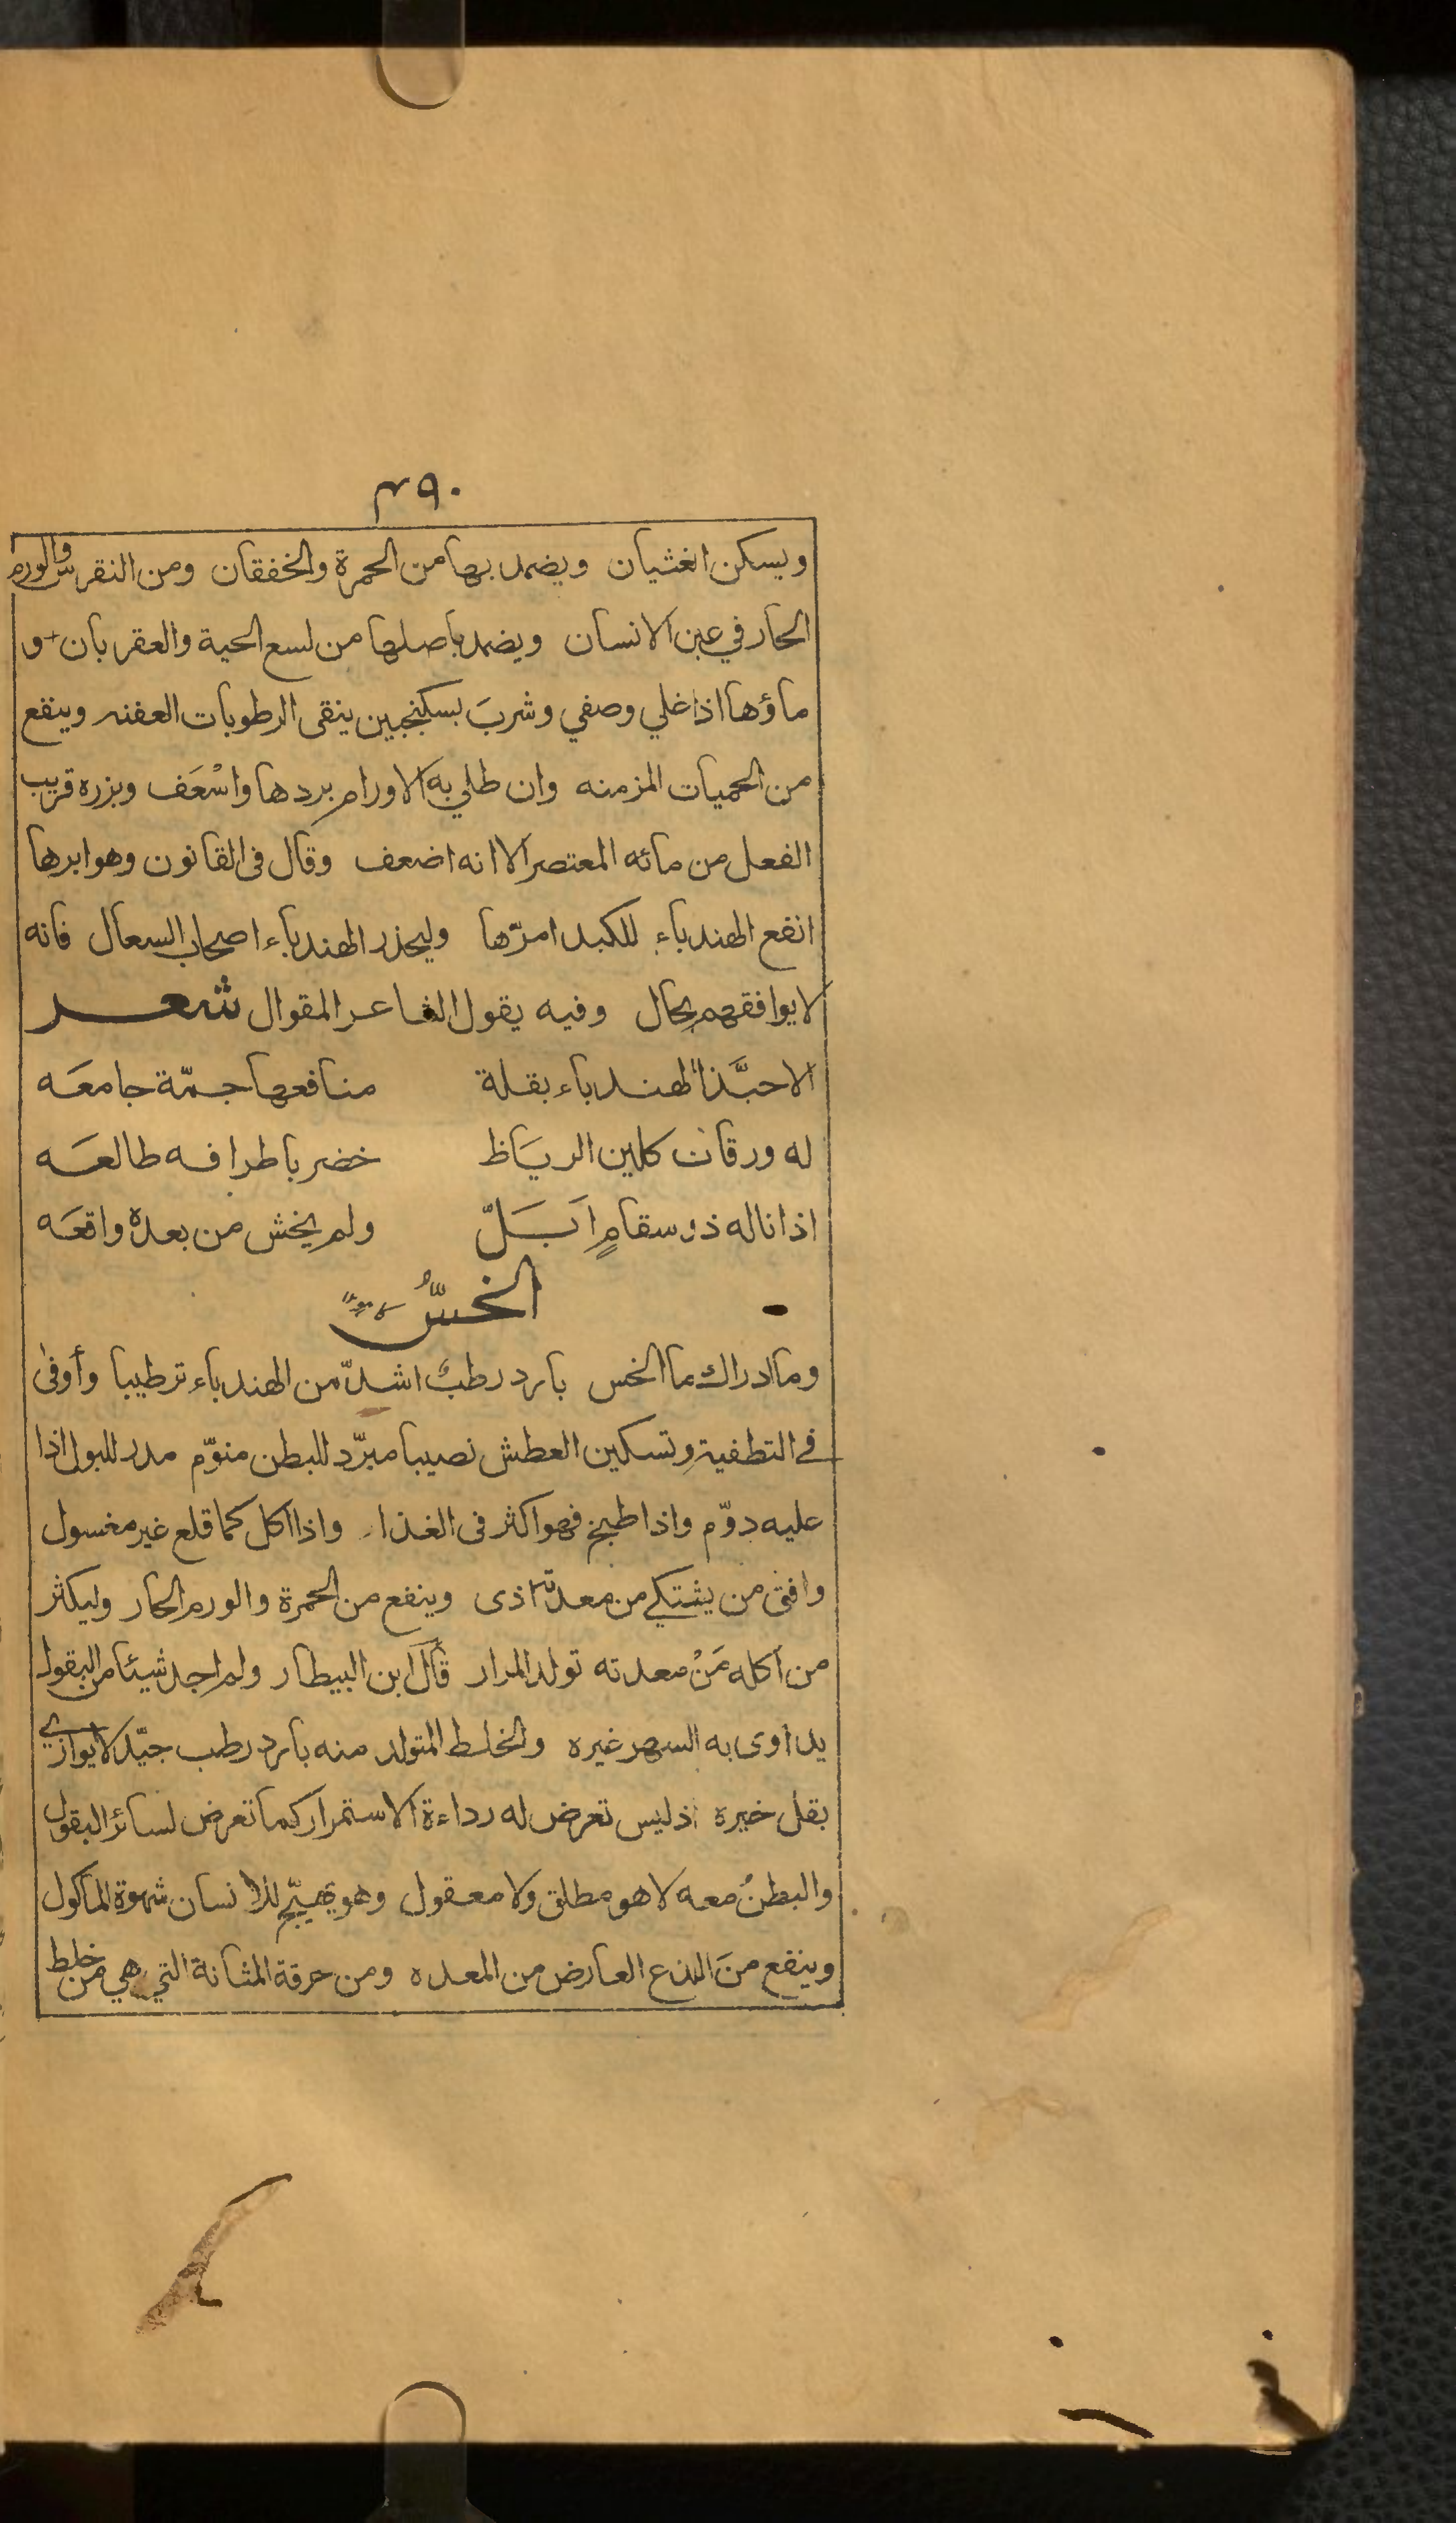 ٣٩٠
ويسكن الغثيان ويضمد بها من الحمرة والخفقان ومن النقرس والورم
الحار في عين الانسان ويضمد باصلها من لسع الحية والعقربان و
ماؤها اذا غلي وصفي وشرب بسكنجبين ينقى الرطوبات العفنه وينفع
من الحميات المزمنه وان طلي به الاورام بردها واسْعَف وبزره قريب
الفعل من مائه المعتصر الا انه اضعف وقال فى القانون وهو ابرها
انفع الهندباء للكبد امرّها وليحذر الهندباء اصحاب السعال فانه
لا يوافقهم بحال وفيه يقول الشاعر المقوال شعر
الا حبَّذا الهندباء بقلة منافعها جمّة جامعَه
له ورقات كلين الرياظ خضر باطرافه طالعَه
اذا ناله ذو سقامٍ اَبَلّ ولم يخش من بعده واقعَه
الخسُّ
وما ادراك ما الخس بارد رطبٌ اشدّ من الهندباء ترطيبا وأوفى
في التطفية وتسكين العطش نصيبا مبرّد للبطن منوّم مدر للبول اذا
عليه دوّم واذا طبخ فهو اكثر فى الغذاء واذا اكل كما قلع غير مغسول
وافق من يشتكي من معدته اذى وينفع من الحمرة والورم الحار وليكثر
من اكله مَنْ معدته تولد المرار قال ابن البيطار ولم اجد شيئا من البقول
يداوى به السهر غيره والخلط المتولد منه بارد رطب جيّد لا يوازي
بقل خيره اذ ليس تعرض له رداءة الاستمرار كما تعرض لسائر البقول
والبطنُ معه لا هو مطلق ولا معقول وهو يهيّج للانسان شهوة المأكول
وينفع منَ اللذع العارض من المعده ومن حرقة المثانة التي هي من خلط